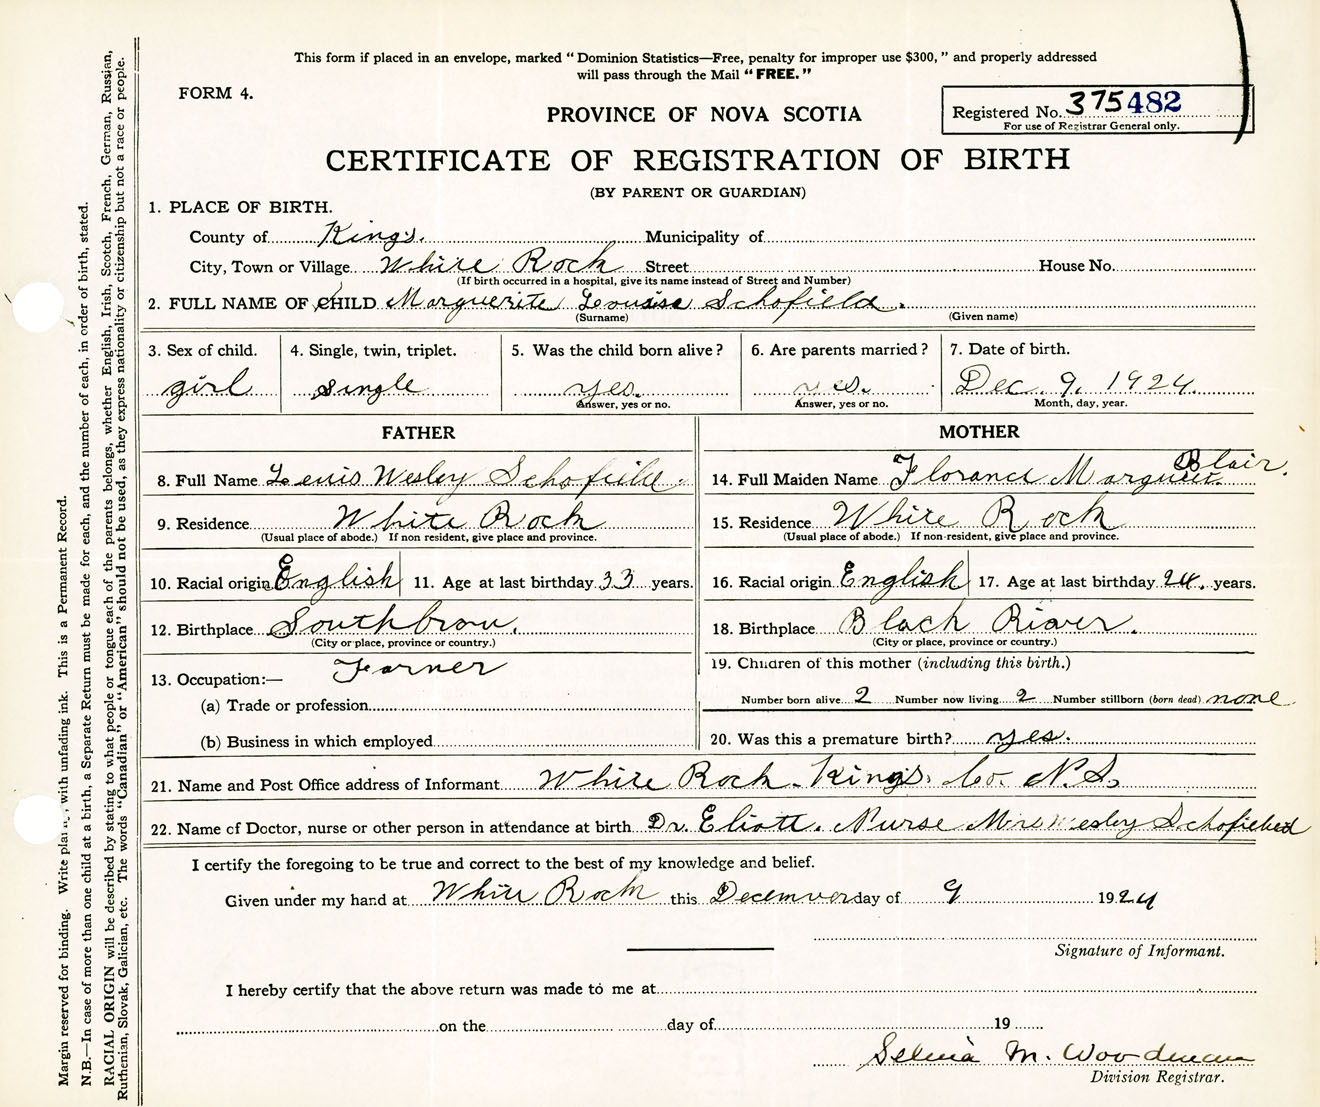 This form if placed in an envelope, marked “Dominion Statistics—Free, penalty for improper use $300,” and properly addressed
will pass through the Mail “FREE.”
FORM 4.
PROVINCE OF NOVA SCOTIA
Registered No. 375482
For use of Registrar General only.
CERTIFICATE OF REGISTRATION OF BIRTH
(BY PARENT OR GUARDIAN)
1. PLACE OF BIRTH.
County of King's. Municipality of
City, Town or Village White Rock Street House No.
(If birth occurred in a hospital, give its name instead of Street and Number)
2. FULL NAME OF CHILD Marguerite Louise Schofield.
(Surname) (Given name)
3. Sex of child. 4. Single, twin, triplet. 5. Was the child born alive? 6. Are parents married? 7. Date of birth.
girl single yes. yes. Dec. 9. 1924.
Answer, yes or no. Answer, yes or no. Month, day, year.
FATHER MOTHER
8. Full Name Lewis Wesley Schofield. 14. Full Maiden Name Blair.
9. Residence White Rock 15. Residence White Rock
(Usual place of abode.) If non resident, give place and province. (Usual place of abode.) If non-resident, give place and province.
10. Racial origin English 11. Age at last birthday 33 years. 16. Racial origin English 17. Age at last birthday 24. years.
12. Birthplace 18. Birthplace Black River.
(City or place, province or country.) (City or place, province or country.)
13. Occupation:— Farmer 19. Children of this mother (including this birth.)
(a) Trade or profession Number born alive 2 Number now living 2 Number stillborn (born dead) none
(b) Business in which employed 20. Was this a premature birth? yes.
21. Name and Post Office address of Informant White Rock. King's. Co. N.S.
22. Name of Doctor, nurse or other person in attendance at birth Dr. Eliott. Nurse Mrs Wesley Schofield
I certify the foregoing to be true and correct to the best of my knowledge and belief.
Given under my hand at White Rock this Decemver day of 9 1924
Signature of Informant.
I hereby certify that the above return was made to me at
on the day of 19
Selina M. Woodman
Division Registrar.
Margin reserved for binding. Write plainly, with unfading ink. This is a Permanent Record.
N.B.—In case of more than one child at a birth, a Separate Return must be made for each, and the number of each, in order of birth, stated.
RACIAL ORIGIN will be described by stating to what people or tongue each of the parents belongs, whether English, Irish, Scotch, French, German, Russian,
Ruthenian, Slovak, Galician, etc. The words “Canadian” or “American” should not be used, as they express nationality or citizenship but not a race or people.